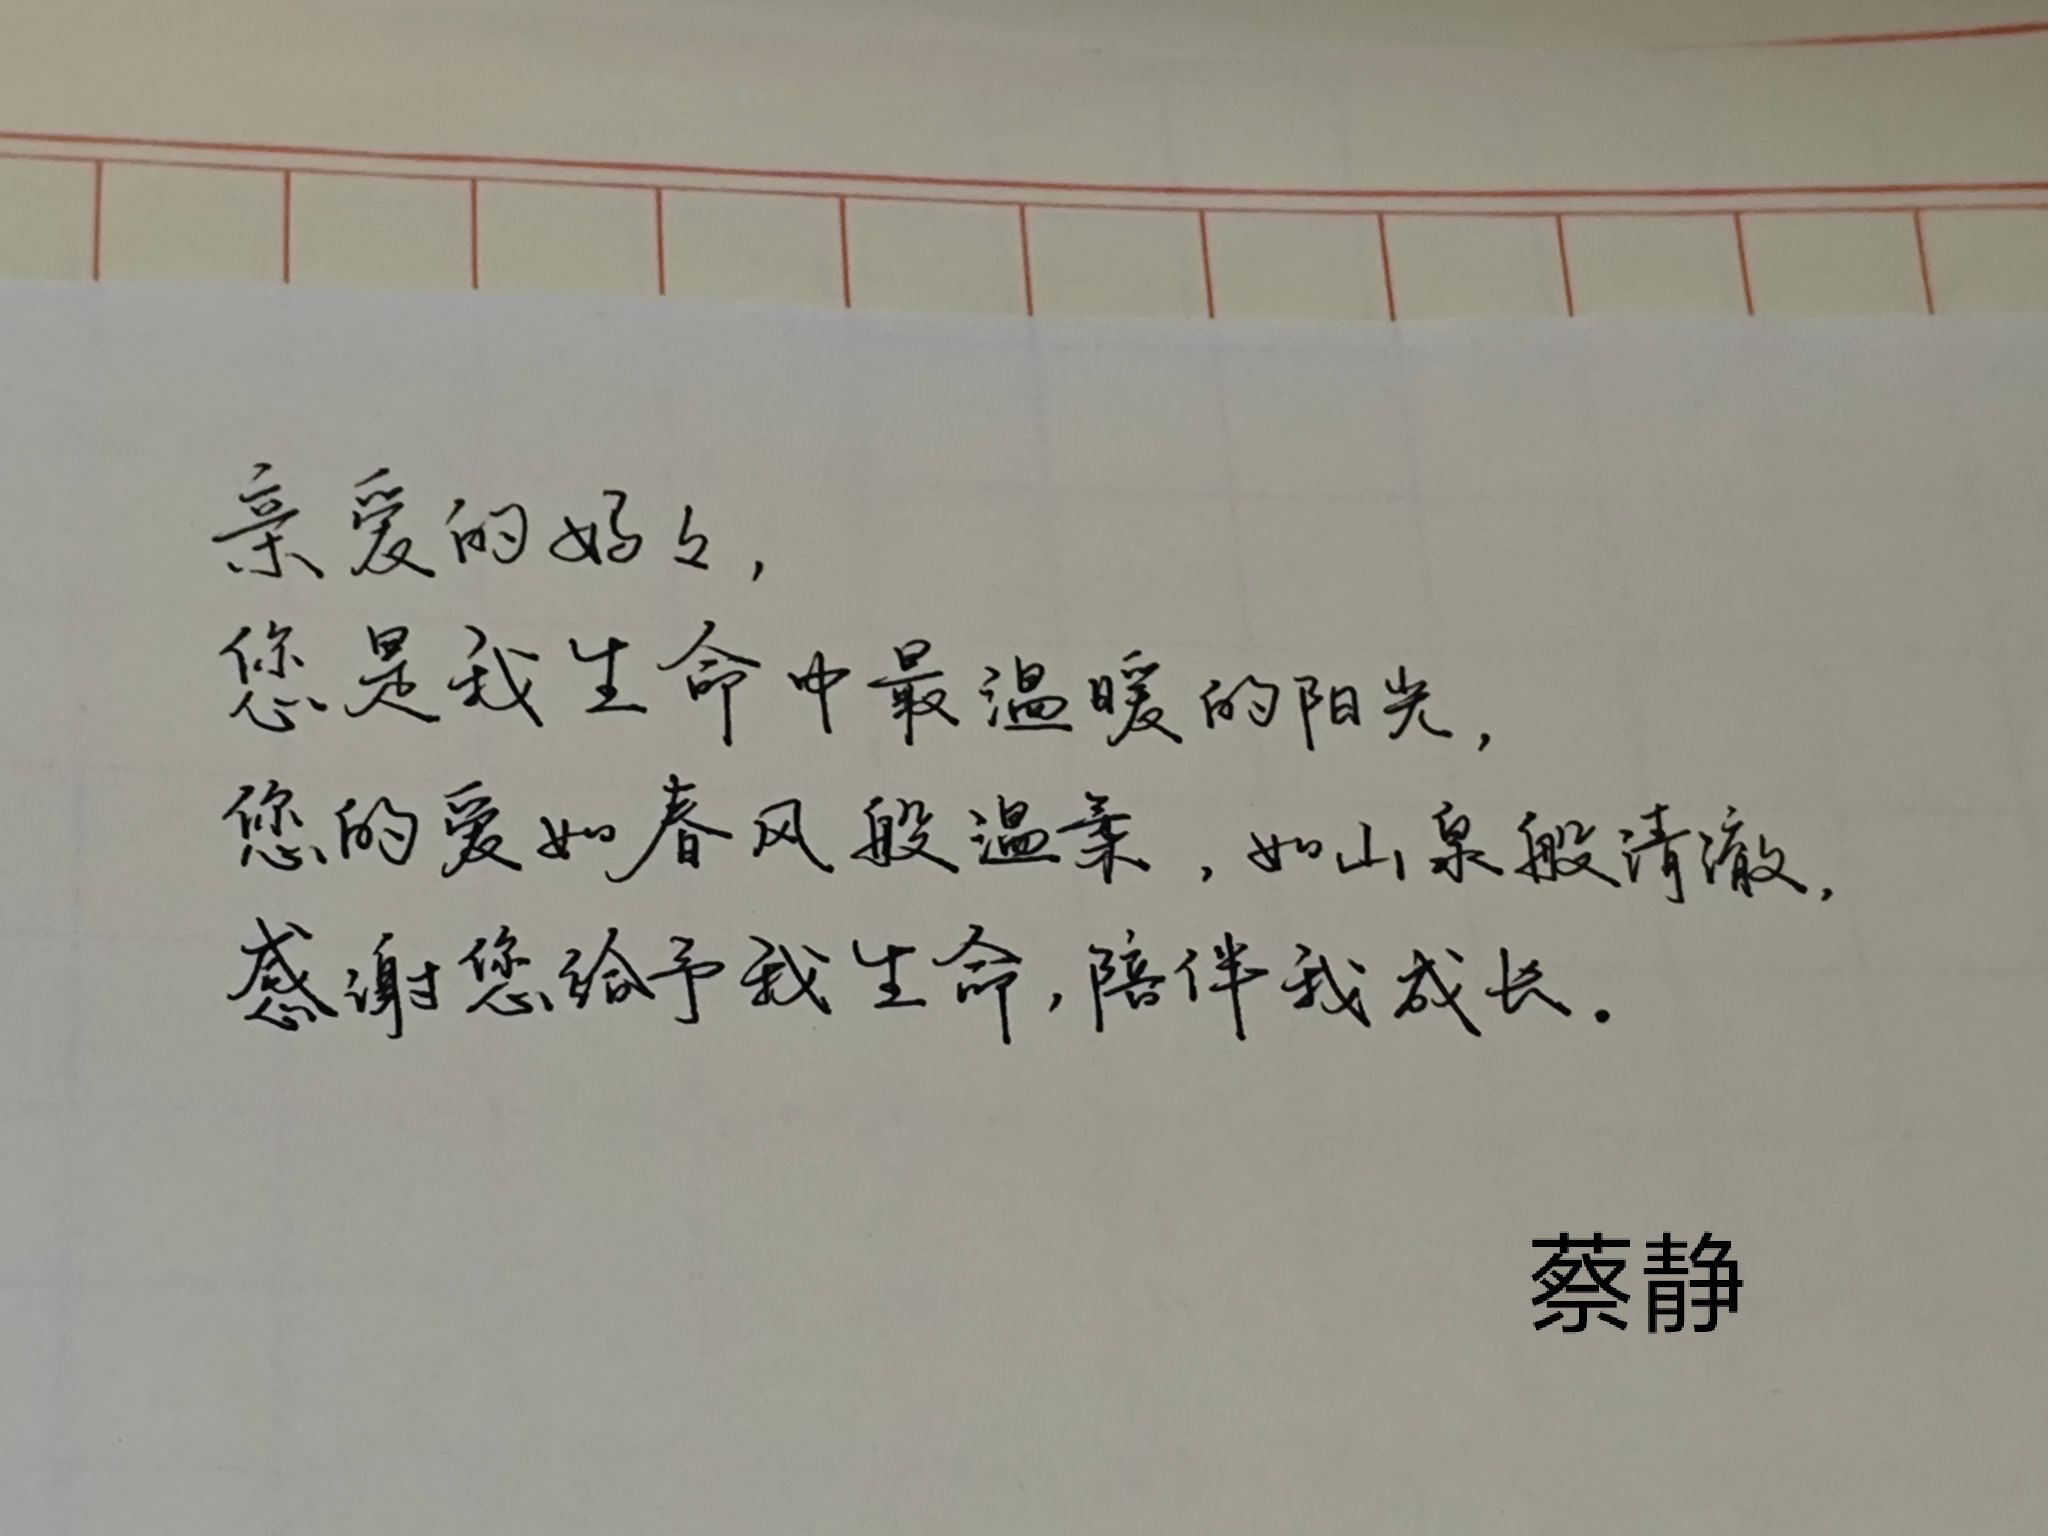 亲爱的妈々,
您是我生命中最温暖的阳光,
您的爱如春风般温柔,如山泉般清澈,
感谢您给予我生命,陪伴我成长.
蔡静